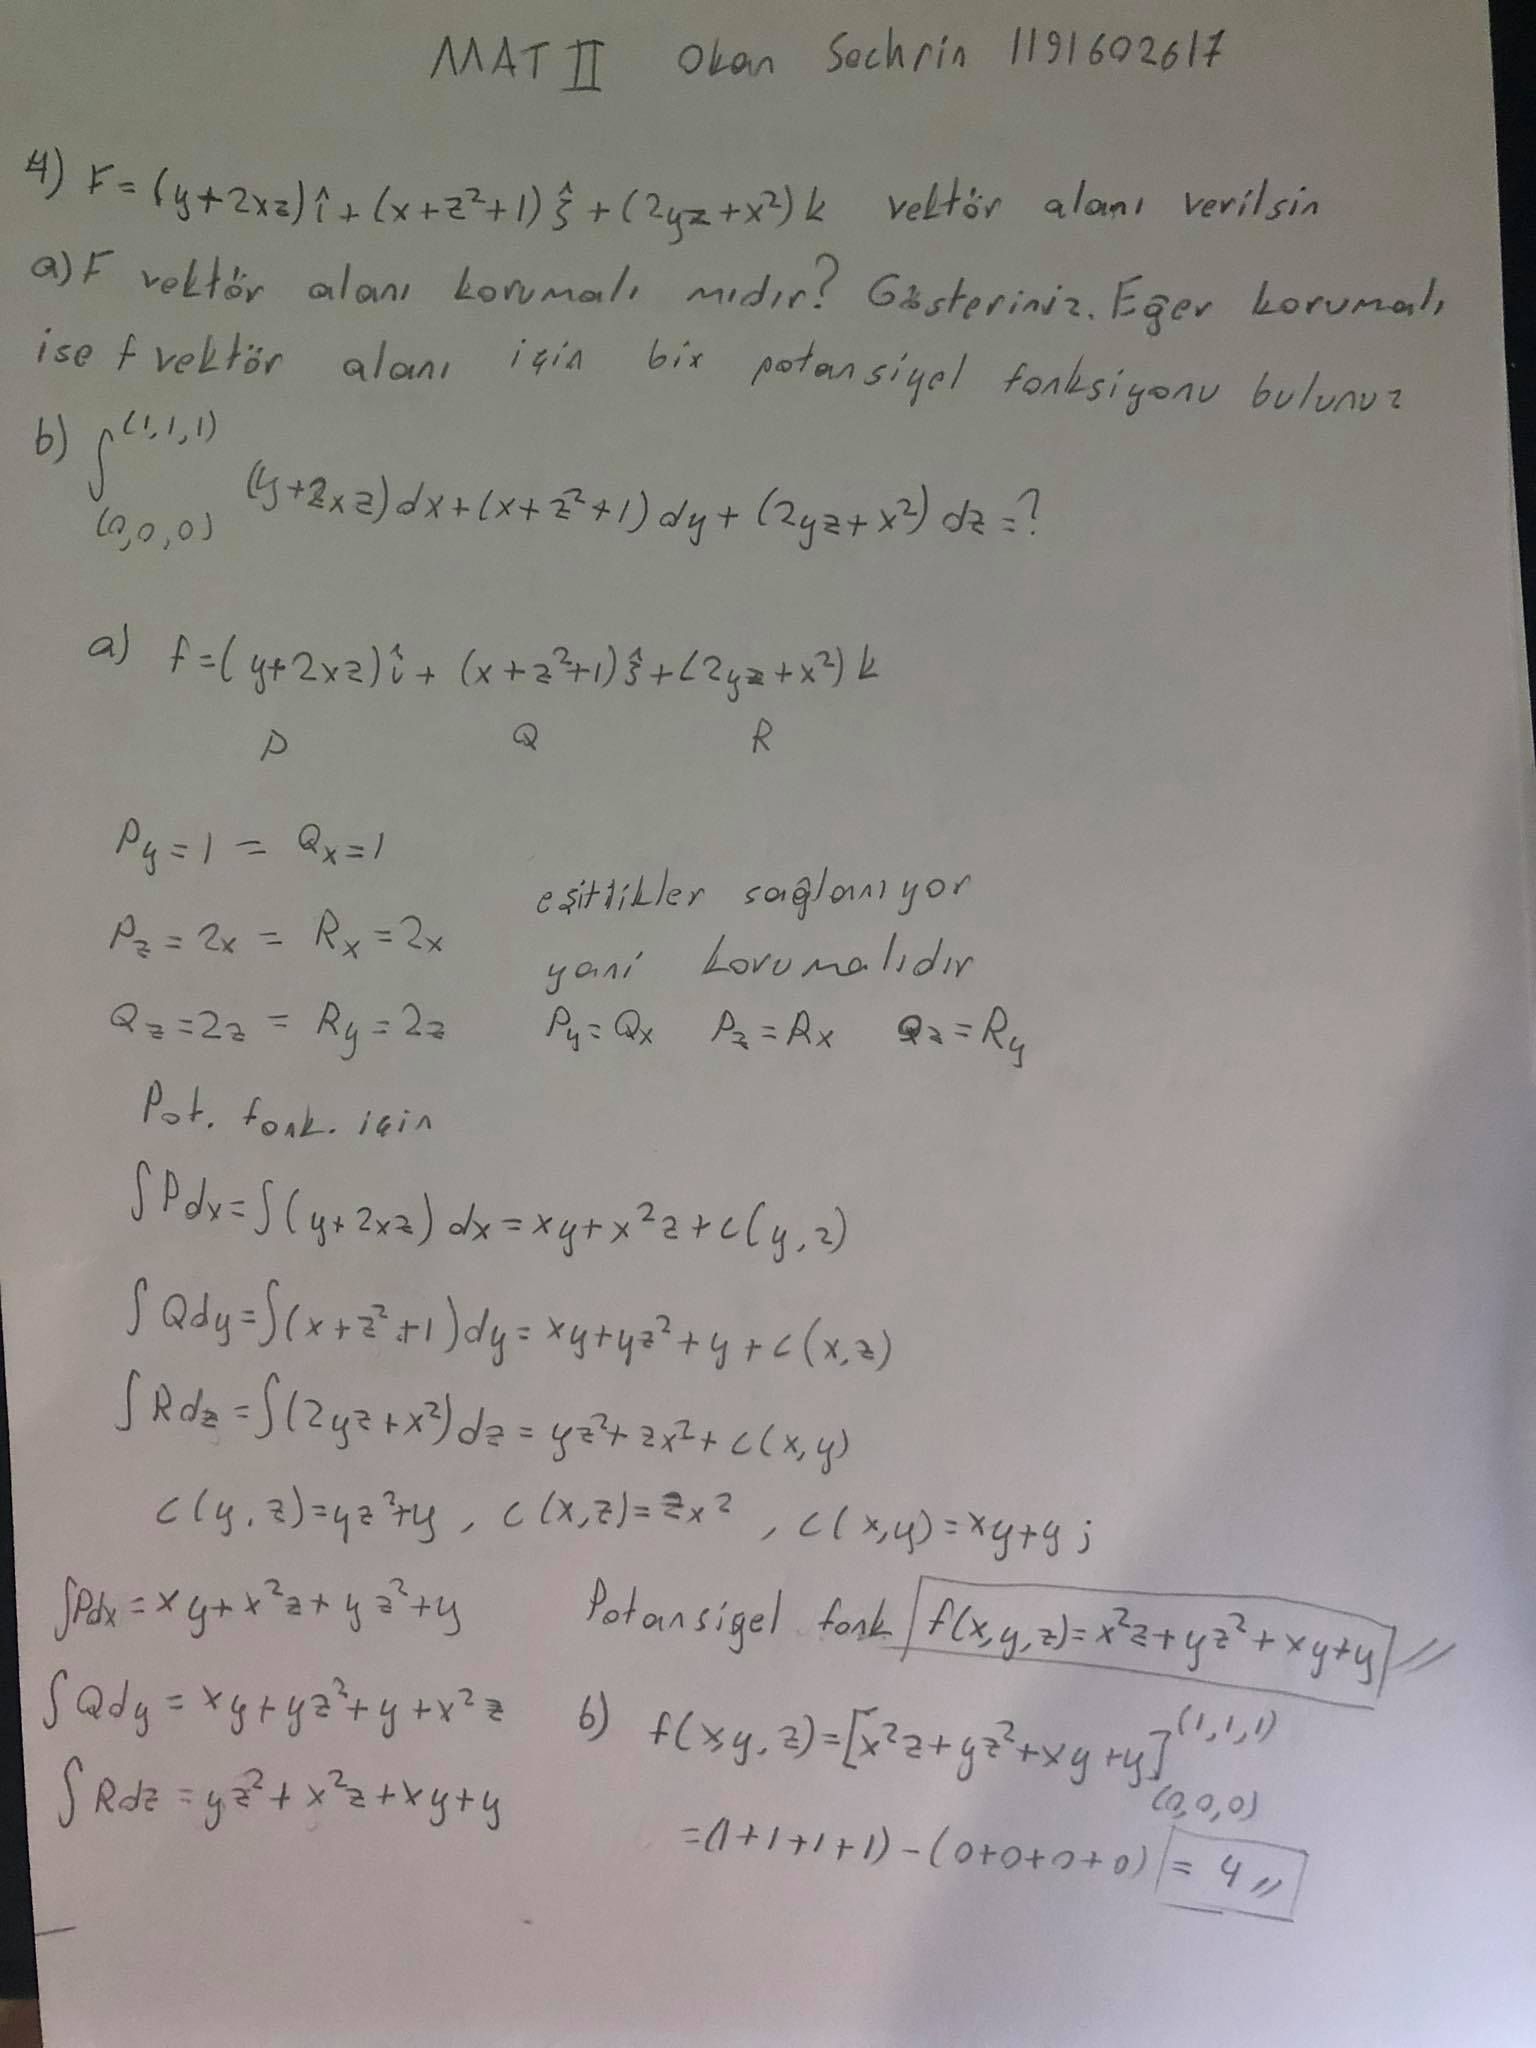 MAT II Okan Sechrin 1191602617
4) F=(y+2xz)î+(x+z²+1)ĵ+(2yz+x²)k vektör alanı verilsin
a) F vektör alanı korumalı mıdır? Gösteriniz. Eğer korumalı
ise f vektör alanı için bir potansiyel fonksiyonu bulunuz
b) ∫(0,0,0)^(1,1,1) (y+2xz)dx+(x+z²+1)dy+(2yz+x²)dz=?
a) f=(y+2xz)î+(x+z²+1)ĵ+(2yz+x²)k
P Q R
Py=1 = Qx=1
eşitlikler sağlanıyor
Pz=2x = Rx=2x
yani korumalıdır
Qz=2z = Ry=2z Py=Qx Pz=Rx Qz=Ry
Pot. fonk. için
∫Pdx=∫(y+2xz)dx=xy+x²z+c(y,z)
∫Qdy=∫(x+z²+1)dy=xy+yz²+y+c(x,z)
∫Rdz=∫(2yz+x²)dz=yz²+zx²+c(x,y)
c(y,z)=yz²+y, c(x,z)=zx², c(x,y)=xy+y;
∫Pdx=xy+x²z+yz²+y
Potansiyel fonk f(x,y,z)=x²z+yz²+xy+y //
∫Qdy=xy+yz²+y+x²z
b) f(x,y,z)=[x²z+yz²+xy+y](0,0,0)^(1,1,1)
∫Rdz=yz²+x²z+xy+y
=(1+1+1+1)-(0+0+0+0) = 4 //